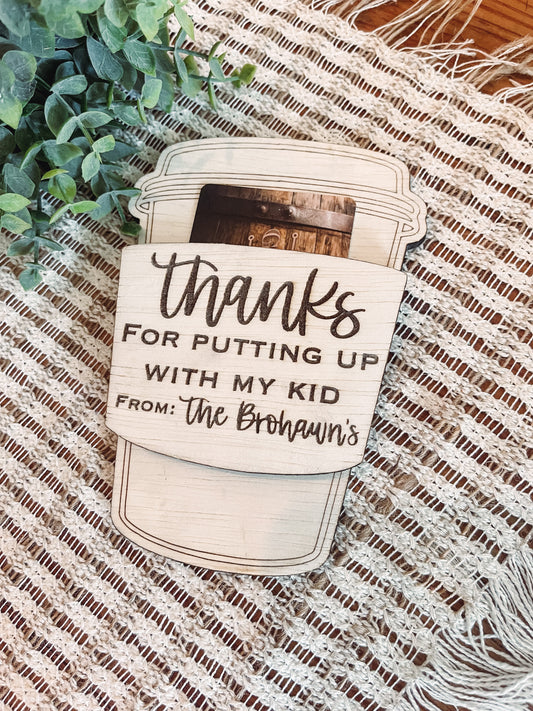 thanks
FOR PUTTING UP
WITH MY KID
FROM: The Brohawn's